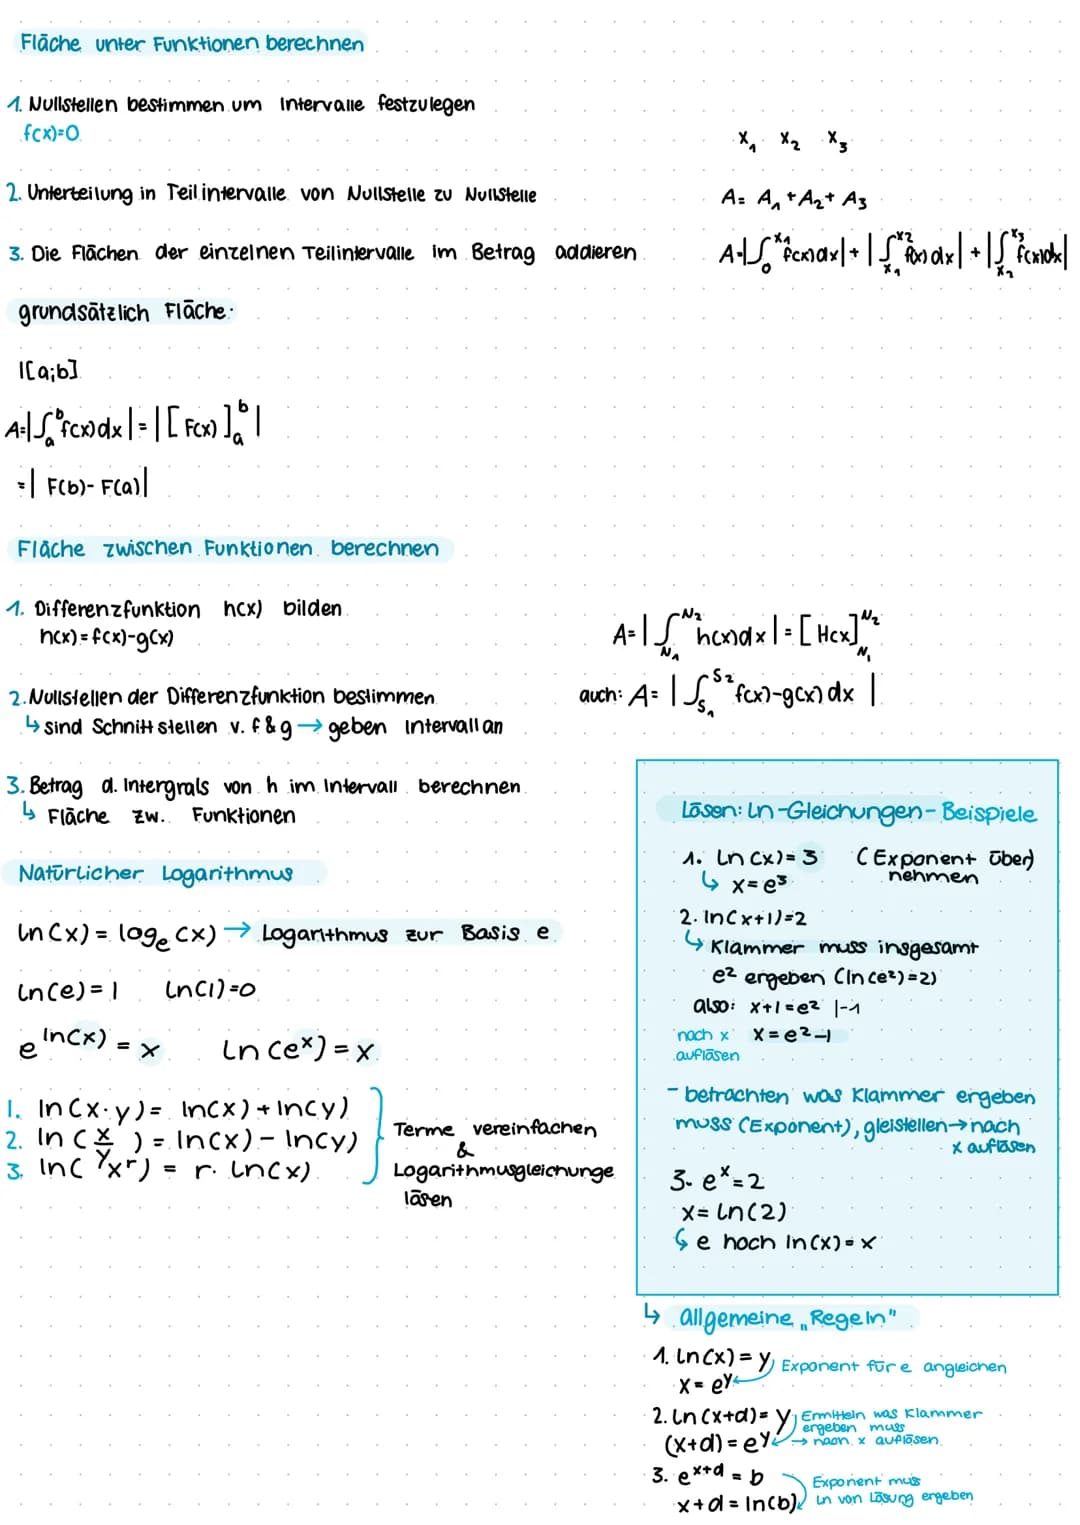 Fläche unter Funktionen berechnen
1. Nullstellen bestimmen um Intervalle festzulegen
f(x)=0
x₁ x₂ x₃
2. Unterteilung in Teilintervalle von Nullstelle zu Nullstelle
A= A₁+A₂+A₃
3. Die Flächen der einzelnen Teilintervalle im Betrag addieren
A=|∫₀^x₁ f(x)dx|+|∫x₁^x₂ f(x)dx|+|∫x₂^x₃ f(x)dx|
grundsätzlich Fläche:
I[a;b]
A=|∫ₐᵇf(x)dx|=|[F(x)]ₐᵇ|
=|F(b)-F(a)|
Fläche zwischen Funktionen berechnen
1. Differenzfunktion h(x) bilden
h(x)=f(x)-g(x)
A=|∫N₁^N₂ h(x)dx|=[H(x]N₁^N₂
2. Nullstellen der Differenzfunktion bestimmen
↳ sind Schnittstellen v. f & g → geben Intervall an
auch: A= |∫S₁^S₂ f(x)-g(x) dx |
3. Betrag d. Intergrals von h im Intervall berechnen
↳ Fläche zw. Funktionen
Natürlicher Logarithmus
ln(x) = logₑ(x) → Logarithmus zur Basis e
ln(e)=1 ln(1)=0
e^ln(x) = x ln(eˣ) = x
1. ln(x·y)= ln(x)+ln(y)
2. ln(x/y) = ln(x)-ln(y)
3. ln(xʳ) = r· ln(x)
Terme vereinfachen
&
Logarithmusgleichunge
lösen
Lösen: Ln-Gleichungen-Beispiele
1. Ln(x)=3 (Exponent über)
nehmen
↳ x=e³
2. ln(x+1)=2
↳ Klammer muss insgesamt
e² ergeben (ln(e²)=2)
also: x+1=e² |-1
nach x x=e²-1
auflösen
- betrachten was Klammer ergeben
muss (Exponent), gleistellen→nach
x auflösen
3. eˣ=2
x= ln(2)
↳ e hoch ln(x)=x
↳ allgemeine „Regeln"
1. Ln(x)=y Exponent für e angleichen
x= eʸ
2. Ln(x+d)=y Ermitteln was Klammer
ergeben muss
(x+d)=eʸ → nach x auflösen
3. eˣ⁺ᵈ = b Exponent muss
x+d = ln(b) ln von Lösung ergeben